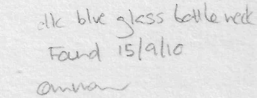 dk blue glass bottle neck
Found 15/9/10